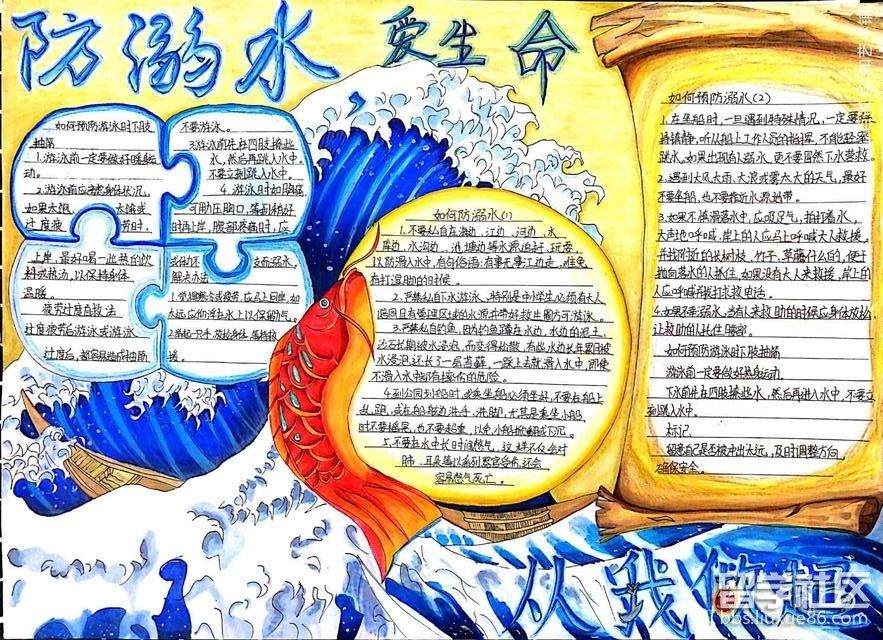 防溺水
爱生命
如何预防游泳时下肢
抽筋
1.游泳前一定要做好暖身运
动。
2.游泳前应考虑身体状况,
如果太饱、
太饿或
过度疲
劳时,应
不要游泳。
3.游泳前先在四肢撩些
水,然后再跳入水中。
不要立刻跳入水中。
4.游泳时如胸痛
可用力压胸口,等到稍好
时再上岸,腹部疼痛时,应
上岸,最好喝一些热的饮
料或热汤,以保持身体
温暖。
疲劳过度自救法
过度疲劳后游泳或游泳
过度后,都容易造成抽筋
解决办法
1.觉得寒冷或疲劳,应马上回岸,如
太远应仰浮在水上以保留力气。
如何防溺水(1)
1.不要私自在海边、江边、河边、水
库边、水沟边、池塘边等水源追赶、玩耍,
以防滑入水中,有句俗语:有事无事江边走,难免
有打湿脚的时候。
2.严禁私自下水游泳,特别是中小学生必须有大人
陪同且有管理区域的水源并带好救生圈方可游泳。
3.严禁私自钓鱼,因为钓鱼蹲在水边,水边的泥土、
沙石长期被水浸泡,而变得松散,有些水边长年累月被
水浸泡还长了一层苔藓,一踩上去就滑入水中,即使
不滑入水中却有摔伤的危险。
4.到公园划船时,或乘坐船必须坐好,不要在船上
乱跑,或在船舷边洗手、洗脚,尤其是乘坐小船
时不要摇晃,也不要超重,以免小船掀翻或下沉。
5.不要在水中长时间憋气,这样不仅会对
容易憋气死亡。
如何预防溺水(2)
1.在坐船时,一旦遇到特殊情况,一定要保
持镇静,听从船上工作人员的指挥,不能轻率
跳水,如果出现有人溺水,更不要冒然下水营救。
2.遇到大风大雨、大浪或雾太大的天气,最好
不要坐船,也不要靠近水源地带。
3.如果不慎滑落水中,应吸足气,拍打着水,
大声地呼喊,岸上的人应马上呼喊大人救援,
并找附近的长树枝、竹子、草藤什么的,便于
抛向落水的人抓住,如果没有大人来救援,岸上的
人应呼喊并拨打求救电话。
4.如果不幸溺水,当有人来救助的时候应身体放松,
让救助的人托住腰部。
如何预防游泳时下肢抽筋
游泳前一定要做好热身运动。
下水前先在四肢撩些水,然后再进入水中,不要立
刻跳入水中。
标记
留意自己是否被冲出太远,及时调整方向,
确保安全。
从我做起
留学社区
bbs.liuxue86.com